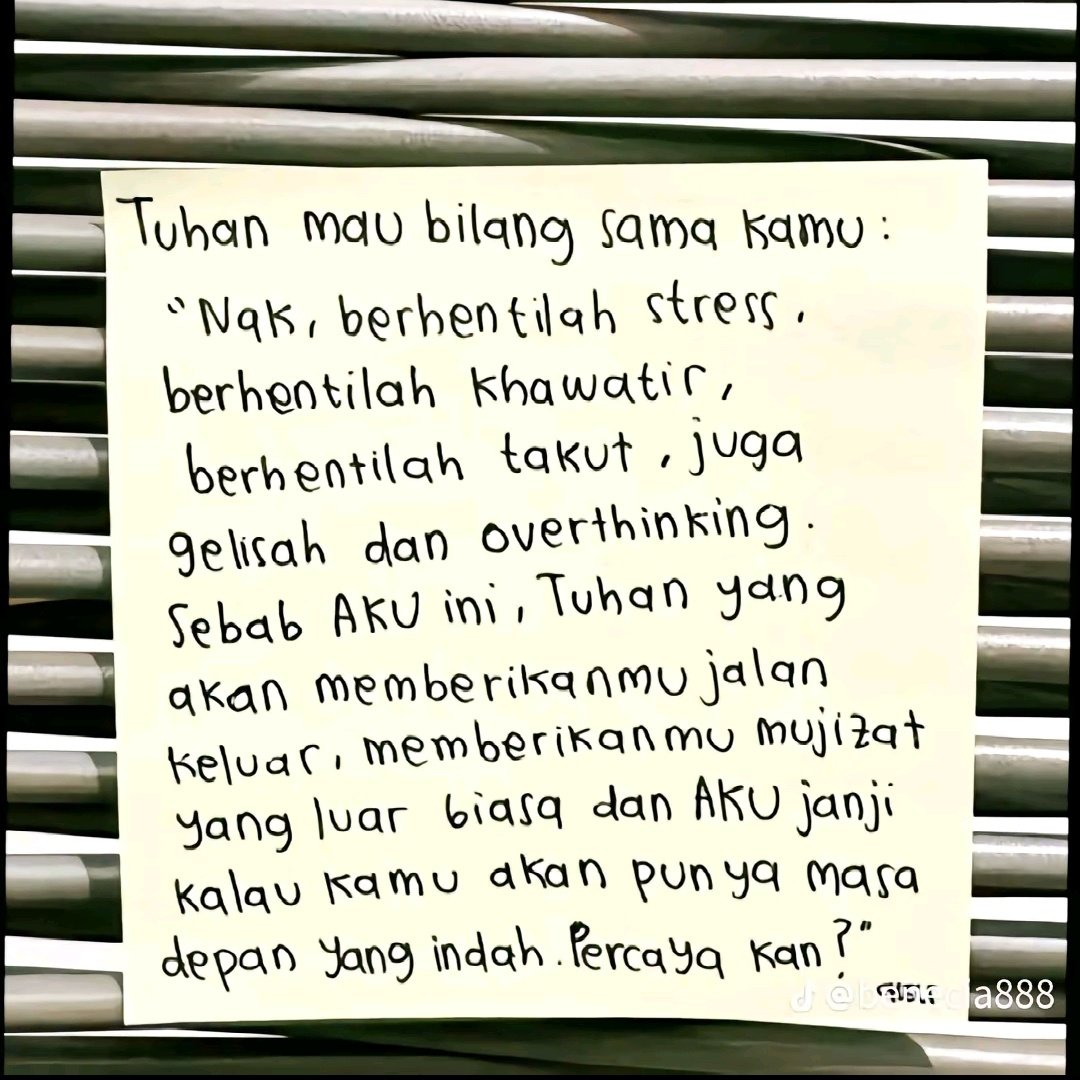 Tuhan mau bilang sama kamu :
"Nak, berhentilah stress,
berhentilah khawatir,
berhentilah takut, juga
gelisah dan overthinking.
Sebab AKU ini, Tuhan yang
akan memberikanmu jalan
keluar, memberikanmu mujizat
yang luar biasa dan AKU janji
kalau kamu akan punya masa
depan yang indah. Percaya kan?"